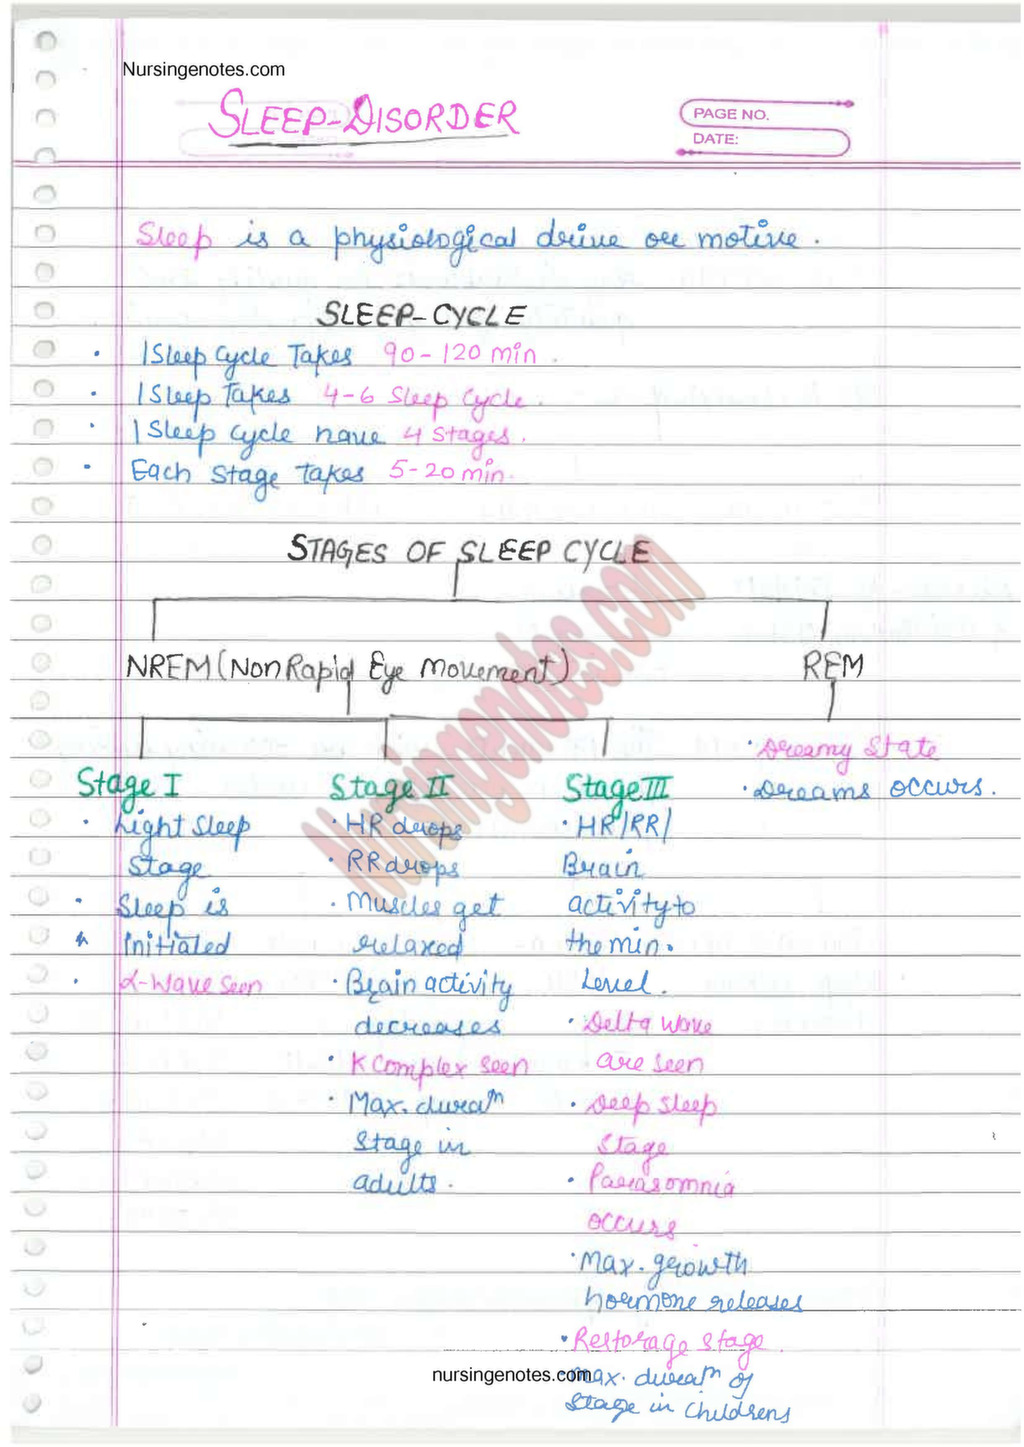 Nursingenotes.com
SLEEP-DISORDER
PAGE NO.
DATE:
Sleep is a physiological drive or motive.
SLEEP-CYCLE
• 1 Sleep cycle Takes 90-120 min.
• 1 Sleep Takes 4-6 Sleep Cycle.
• 1 Sleep cycle have 4 stages.
• Each stage takes 5-20 min.
STAGES OF SLEEP CYCLE
NREM (Non Rapid Eye Movement)
REM
• Dreamy State
• Dreams occurs.
Stage I
• Light Sleep
Stage
• Sleep is
Initiated
• α-Wave seen
Stage II
• HR drops
• RR drops
• Muscles get
relaxed
• Brain activity
decreases
• K Complex seen
• Max. duraⁿ
stage in
adults.
Stage III
• HR/RR/
Brain
activity to
the min.
Level.
• Delta wave
are seen
• Deep sleep
stage
• Parasomnia
occurs
• Max. growth
hormone releases
• Restorage stage.
Max. duraⁿ of
stage in childrens
Nursingenotes.com
nursingenotes.com